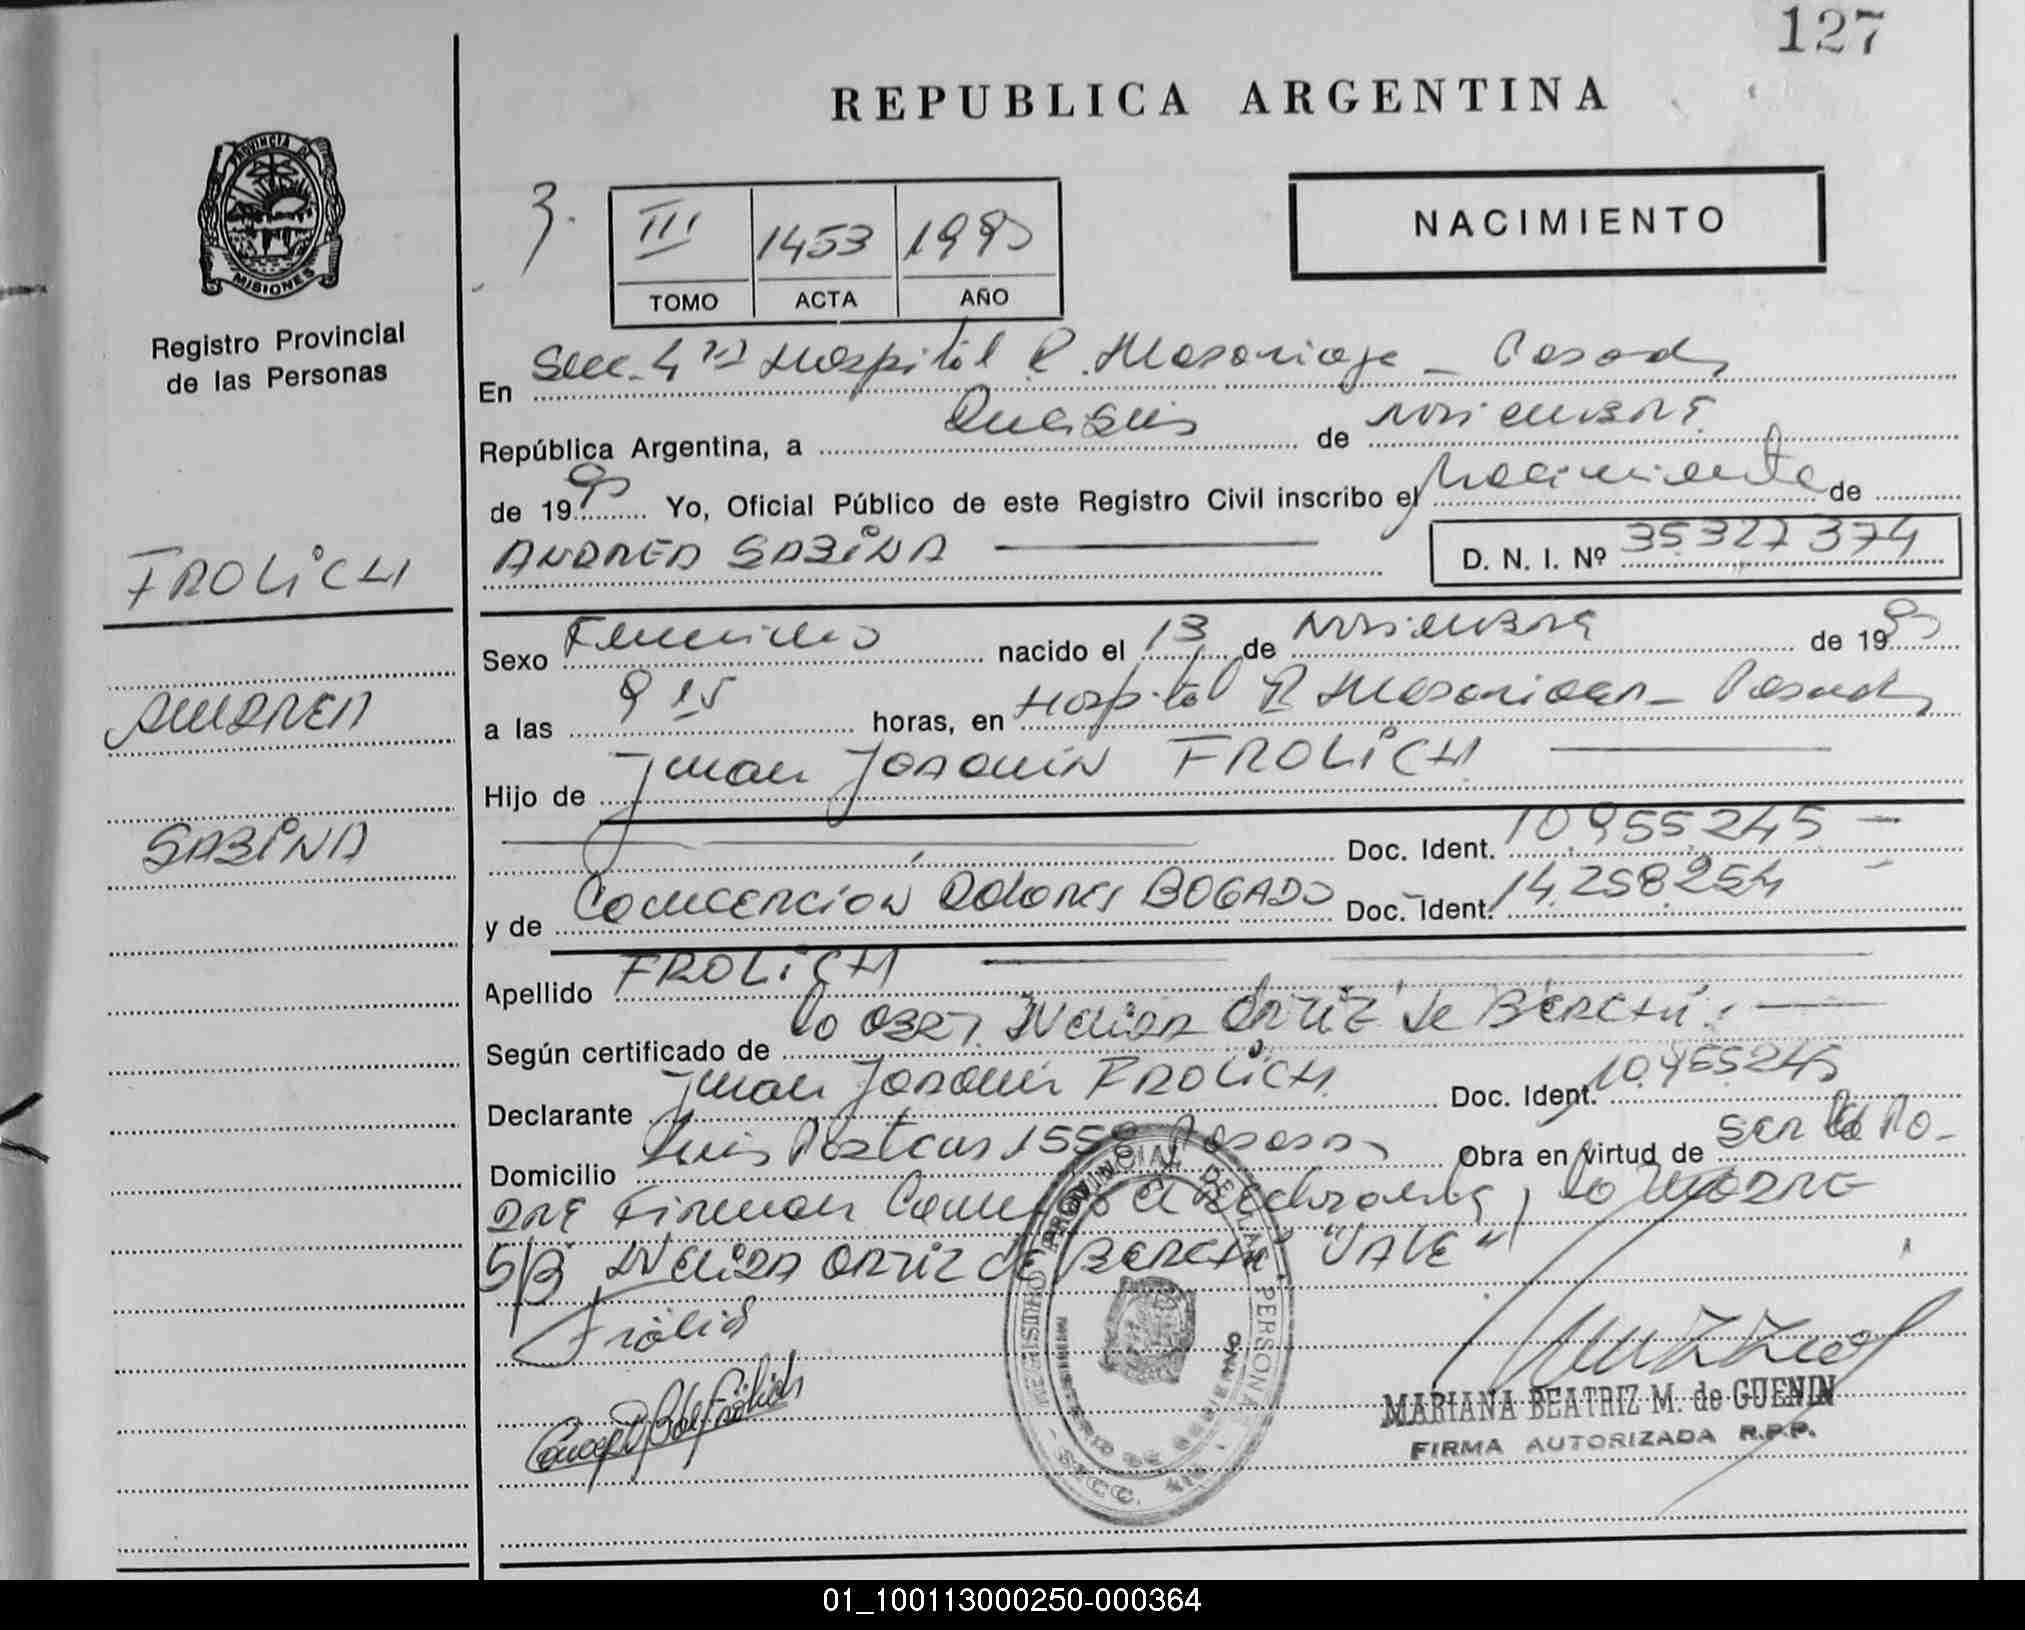 127
REPUBLICA ARGENTINA
PROVINCIA DE
MISIONES
Registro Provincial
de las Personas
3.
III 1453 1990
TOMO ACTA AÑO
NACIMIENTO
En Secc. 4ta Hospital R. Madariaga - Posadas
República Argentina, a Dieciseis de noviembre
de 1990 Yo, Oficial Público de este Registro Civil inscribo el Nacimiento de
ANDREA SABINA D. N. I. Nº 35327374
FROLICH
ANDREA
SABINA
Sexo Femenino nacido el 13 de noviembre de 1990
a las 9 15 horas, en Hospital R Madariaga - Posadas
Hijo de Juan Joaquin FROLICH
Doc. Ident. 10.955.245 -
y de Concepcion Dolores BOGADO Doc. Ident. 14.258.254
Apellido FROLICH
Según certificado de la OBST. Nelida Ortiz de BERCHI
Declarante Juan Joaquin FROLICH Doc. Ident. 10.955245
Domicilio Luis Pasteur 1558 Posadas Obra en virtud de ser el Pa-
dre Firman Como el declarante, la madre
S/B Nelida Ortiz de Berchi "VALE"
Frolich
MARIANA BEATRIZ M. de GUENIN
FIRMA AUTORIZADA R.P.P.
REGISTRO PROVINCIAL DE LAS PERSONAS
MINISTERIO DE GOBIERNO
01_100113000250-000364